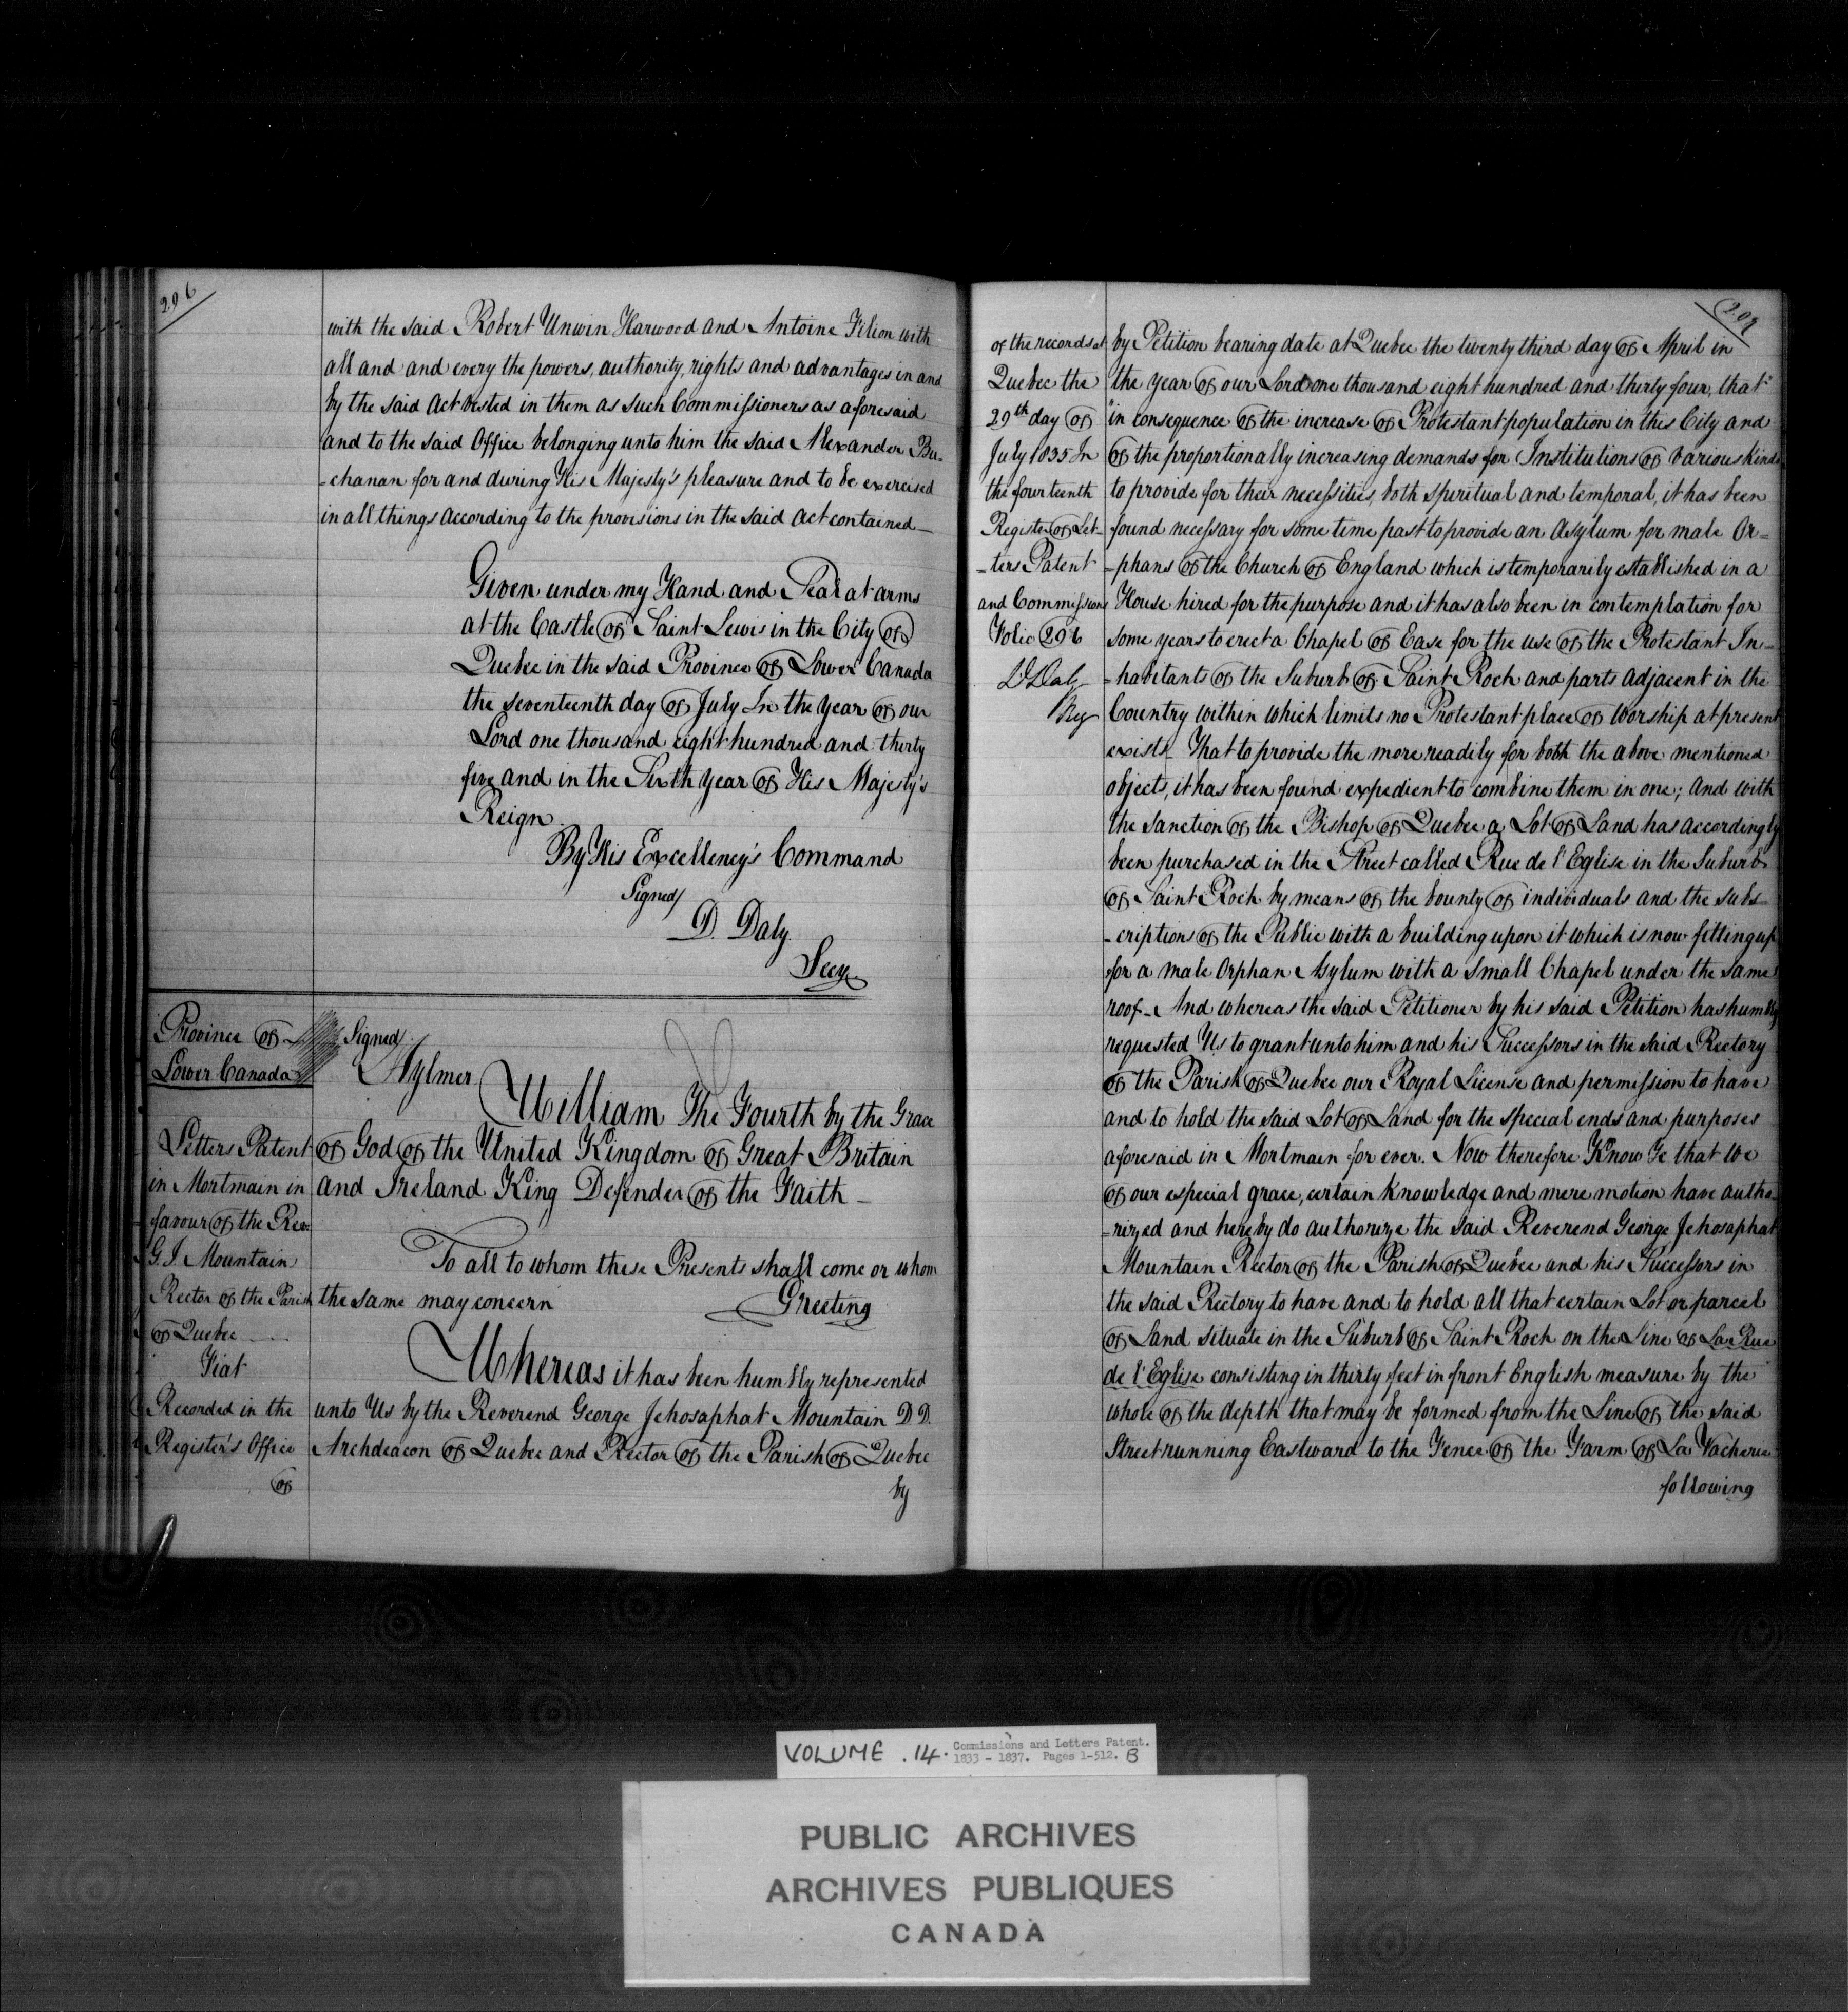 296
with the said Robert Unwin Harwood and Antoine Filion with
all and and every the powers, authority, rights and advantages in and
by the said Act vested in them as such Commissioners as aforesaid
and to the said Office belonging unto him the said Alexander Bu-
-chanan for and during His Majesty's pleasure and to be exercised
in all things according to the provisions in the said Act contained—
Given under my Hand and Seal at arms
at the Castle of Saint Lewis in the City of
Quebec in the said Province of Lower Canada
the seventeenth day of July In the year of our
Lord one thousand eight hundred and thirty
five and in the Sixth year of His Majesty's
Reign.
By His Excellency's Command
Signed/
D. Daly.
Secy
Province of
Lower Canada
Signed/
Aylmer
William The Fourth by the Grace
of God of the United Kingdom of Great Britain
and Ireland King Defender of the Faith —
To all to whom these Presents shall come or whom
the same may concern Greeting
Whereas it has been humbly represented
unto Us by the Reverend George Jehosaphat Mountain D.D.
Archdeacon of Quebec and Rector of the Parish of Quebec
by
Letters Patent
in Mortmain in
favour of the Rev.
G. J. Mountain
Rector of the Parish
of Quebec —
Fiat
Recorded in the
Register's Office
of
297
of the records at
Quebec the
29th day of
July 1835 In
the fourteenth
Register of Let-
-ters Patent
and Commissions
Folio 296
D Daly
Reg
by Petition bearing date at Quebec the twenty third day of April in
the year of our Lord one thousand eight hundred and thirty four, that
"in consequence of the increase of Protestant population in this City and
of the proportionally increasing demands for Institutions of various Kinds
to provide for their necessities, both spiritual and temporal, it has been
found necessary for some time past to provide an Asylum for male Or=
-phans of the Church of England which is temporarily established in a
House hired for the purpose and it has also been in contemplation for
some years to erect a Chapel of Ease for the use of the Protestant In-
-habitants of the Suburb of Saint Roch and parts adjacent in the
Country within which limits no Protestant place of worship at present
exists_ That to provide the more readily for both the above mentioned
objects, it has been found expedient to combine them in one; And with
the sanction of the Bishop of Quebec a Lot of Land has accordingly
been purchased in the Street called Rue de l'Eglise in the Suburb
of Saint Roch by means of the bounty of individuals and the subs-
-criptions of the Public with a building upon it which is now fitting up
for a male Orphan Asylum with a small Chapel under the same
roof_ And whereas the said Petitioner by his said Petition has humbly
requested Us to grant unto him and his Successors in the said Rectory
of the Parish of Quebec our Royal License and permission to have
and to hold the said Lot of Land for the special ends and purposes
aforesaid in Mortmain for ever. Now therefore Know Ye that We
of our especial grace, certain knowledge and mere motion have autho-
-rized and hereby do authorize the said Reverend George Jehosaphat
Mountain Rector of the Parish of Quebec and his Successors in
the said Rectory to have and to hold all that certain Lot or parcel
of Land situate in the Suburb of Saint Roch on the Line of La Rue
de l'Eglise consisting in thirty feet in front English measure by the
whole of the depth that may be formed from the Line of the said
Street running Eastward to the Fence of the Farm of La Vacherie
following
VOLUME .14. Commissions and Letters Patent.
1833 - 1837. Pages 1-512. B
PUBLIC ARCHIVES
ARCHIVES PUBLIQUES
CANADA